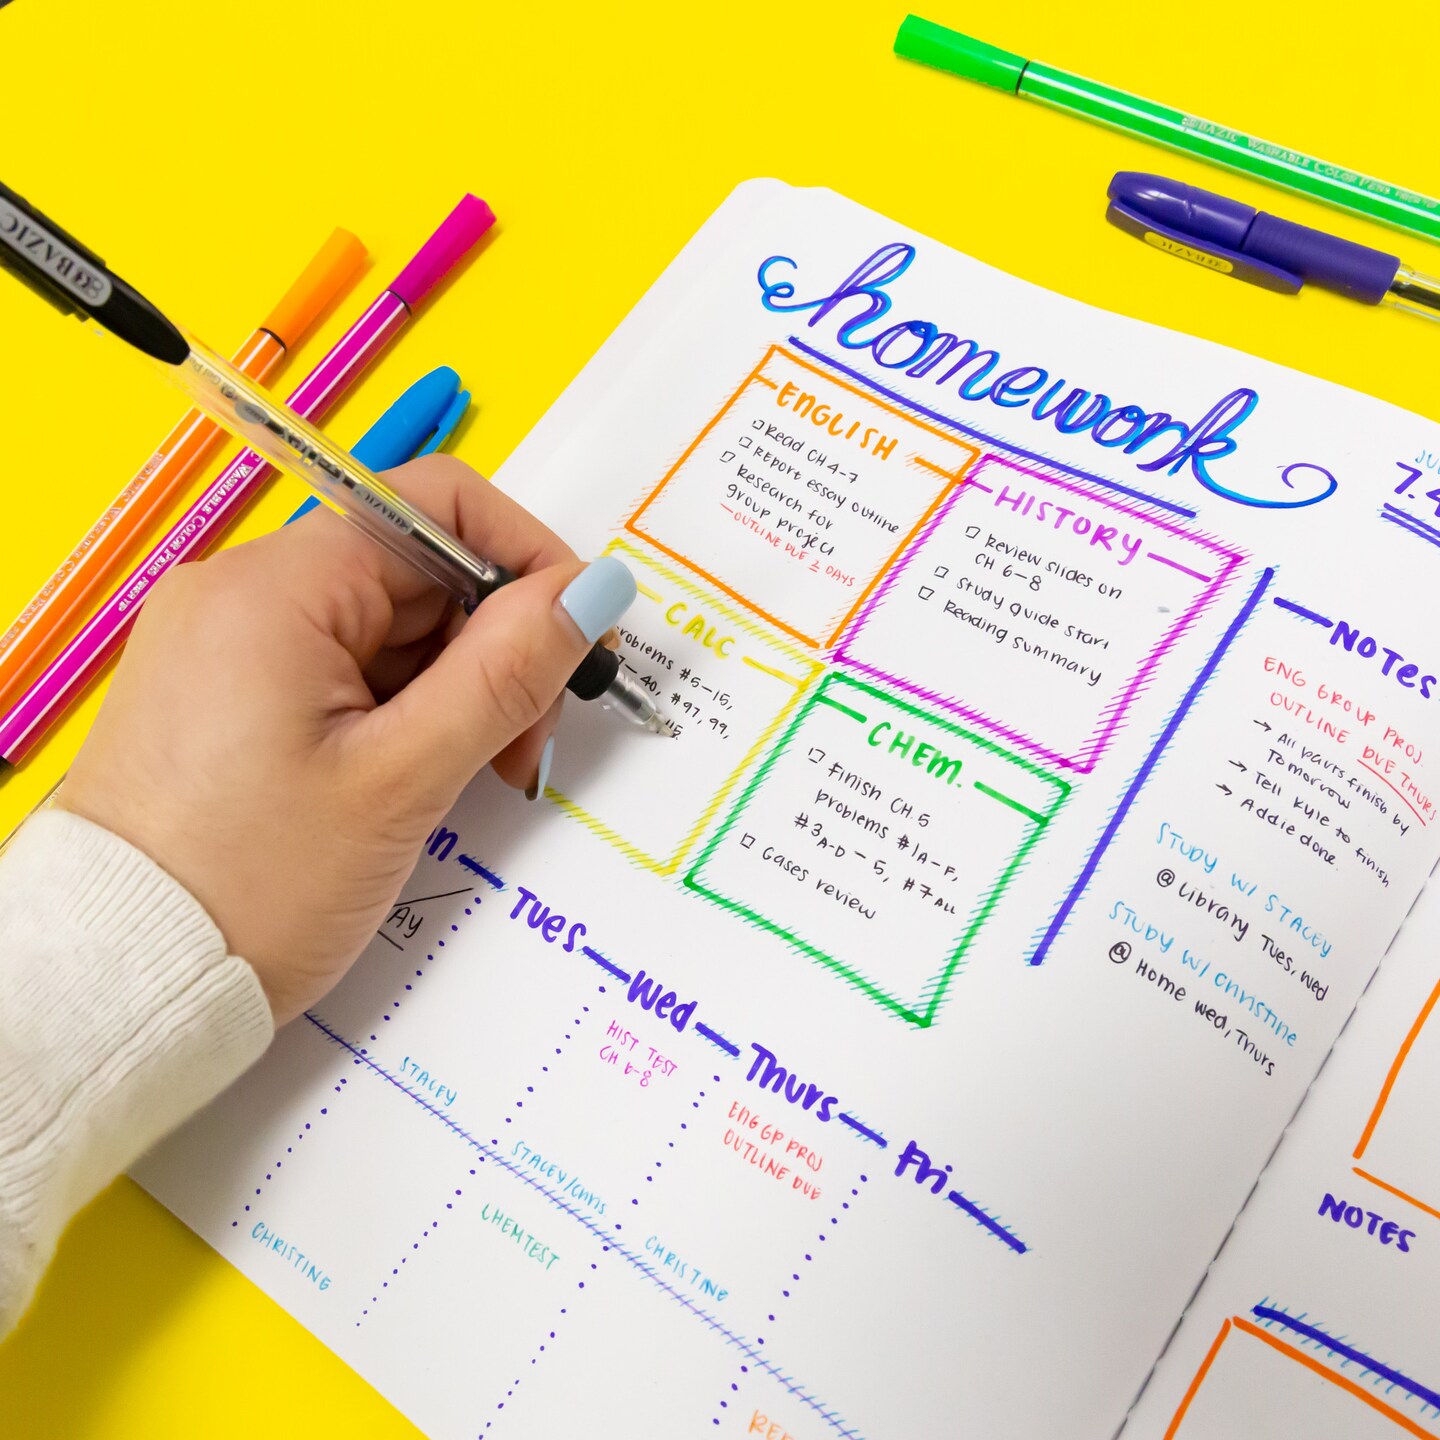 homework
ENGLISH
Read CH 4-7
REPORT essay outline
Research for
group project
-OUTLINE DUE 2 DAYS
HISTORY
Review slides on
CH 6-8
Study guide start
Reading summary
CALC
problems #5-15,
-40, #97, 99,
115
CHEM.
Finish CH. 5
problems #1A-F,
#3A-D-5, #7ALL
Gases review
7.4
NOTES
ENG GROUP PROJ.
OUTLINE DUE THURS
→ All parts finish by
Tomorrow
→ Tell Kyle to finish
→ Addie done.
STUDY W/ STACEY
@ Library Tues, wed
STUDY W/ Christine
@ Home wed, Thurs
Tues
Wed
Thurs
Fri
AY
HIST TEST
CH 6-8
ENG GP PROJ
OUTLINE DUE
STACEY
STACEY/Chris
CHRISTINE
CHRISTINE
CHEM TEST
NOTES
BAZIC WASHABLE COLOR PENS
BAZIC
BAZIC
BAZIC
WASHABLE COLOR PENS FIBER TIP